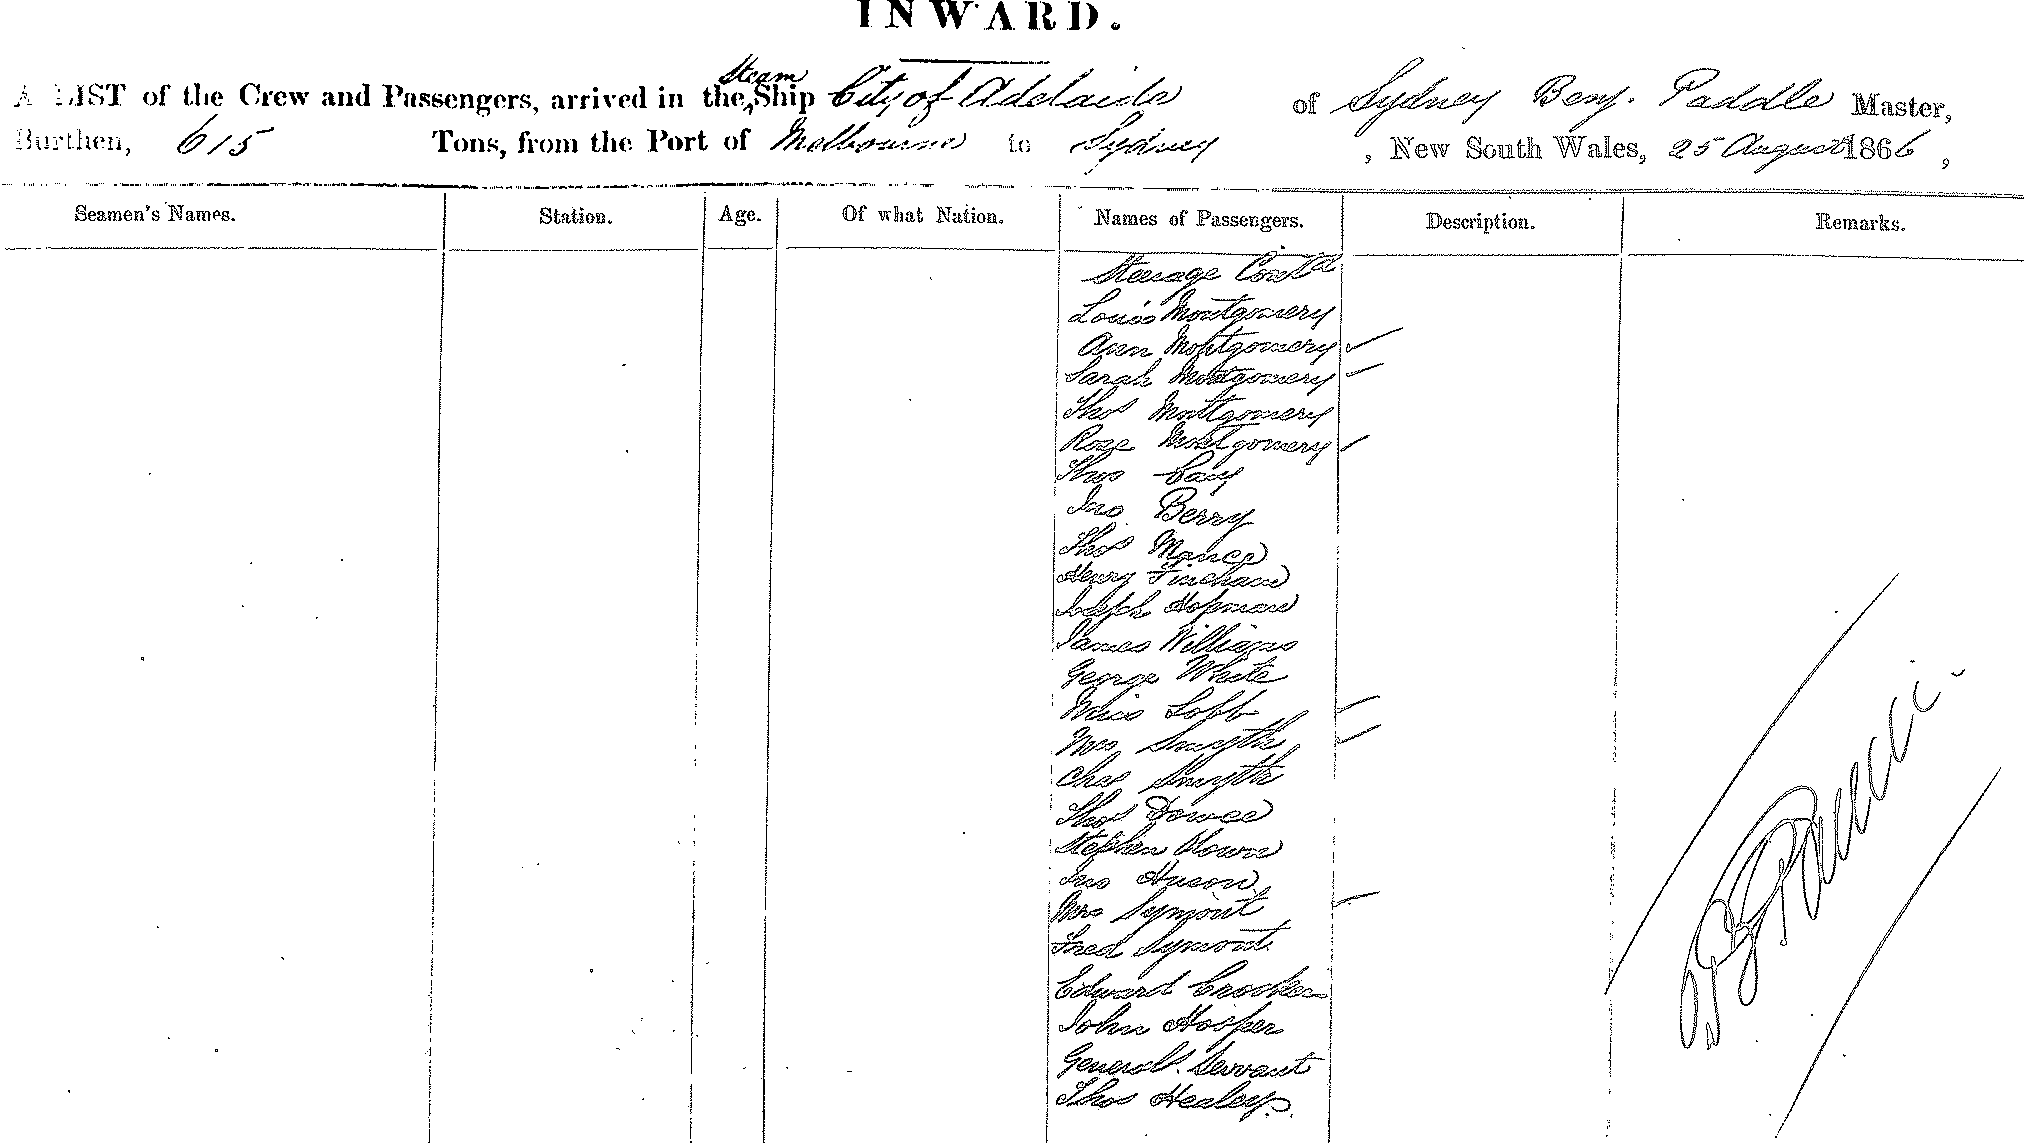 INWARD.
A LIST of the Crew and Passengers, arrived in the Steam Ship City of Adelaide of Sydney Benj. Paddle Master,
Burthen, 615 Tons, from the Port of Melbourne to Sydney, New South Wales, 25 August 1866,
Seamen's Names. Station. Age. Of what Nation. Names of Passengers. Description. Remarks.
Steerage Contd
Louis Montgomery
Ann Montgomery ✓
Sarah Montgomery ✓
Thos Montgomery
Rose Montgomery ✓
Thos
Jno Berry
Thos Mance
Henry Fincham
Joseph Hopman
James Williams
George White
Miss Lobb ✓
Mrs Smythe ✓
Chas Smythe
Thos Dowce
Stephen
Jno Huson
Mrs Symont ✓
Fred Symont
Edward Crooker
John Hosper
General Servant
Thos Healey